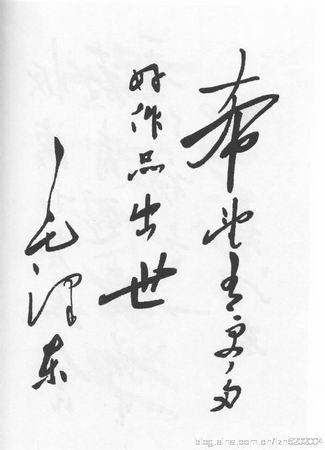 希望有更多
好作品出世
毛泽东
blog.sina.com.cn/lzn5202004